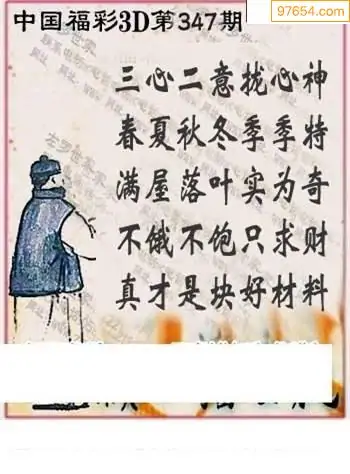 97654.com
中国福彩3D第347期
三心二意拢心神
春夏秋冬季季特
满屋落叶实为奇
不饿不饱只求财
真才是块好材料